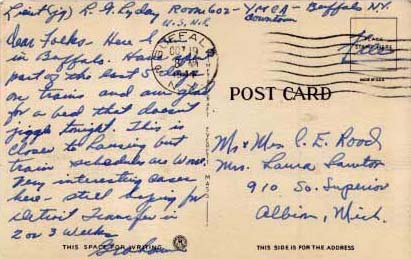 Lieut (jg) R. G. Lyday Room 602 - YMCA - Buffalo N.Y.
U.S.N.R. downtown
Dear Folks - Here I
in Buffalo. Have
part of the last 5 days
on trains and am glad
for a bed that doesn't
jiggle tonight. This is
closer to Lansing but
train schedules are worse.
Very interesting cases
here - still hoping for
Detroit Transfer in
2 or 3 weeks
THIS SPACE FOR WRITING
BUFFALO
OCT 19
N.Y.
Free
PLACE
STAMP
HERE
POST CARD
Mr & Mrs C. E. Rood
Mrs. Laura Lawton
910 So. Superior
Albion, Mich.
THIS SIDE IS FOR THE ADDRESS